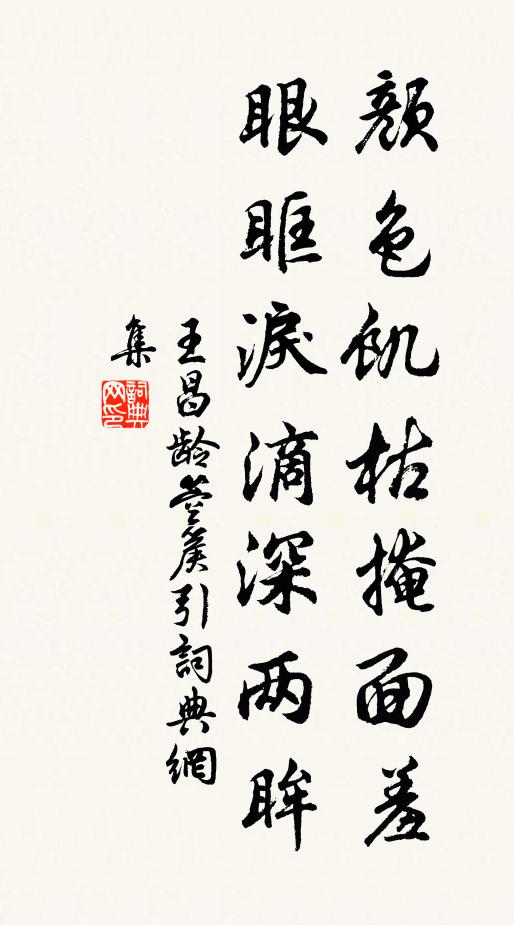 颜色飢枯掩面羞
眼眶淚滴深两眸
王昌龄箜篌引詞典網
集
詞典网印